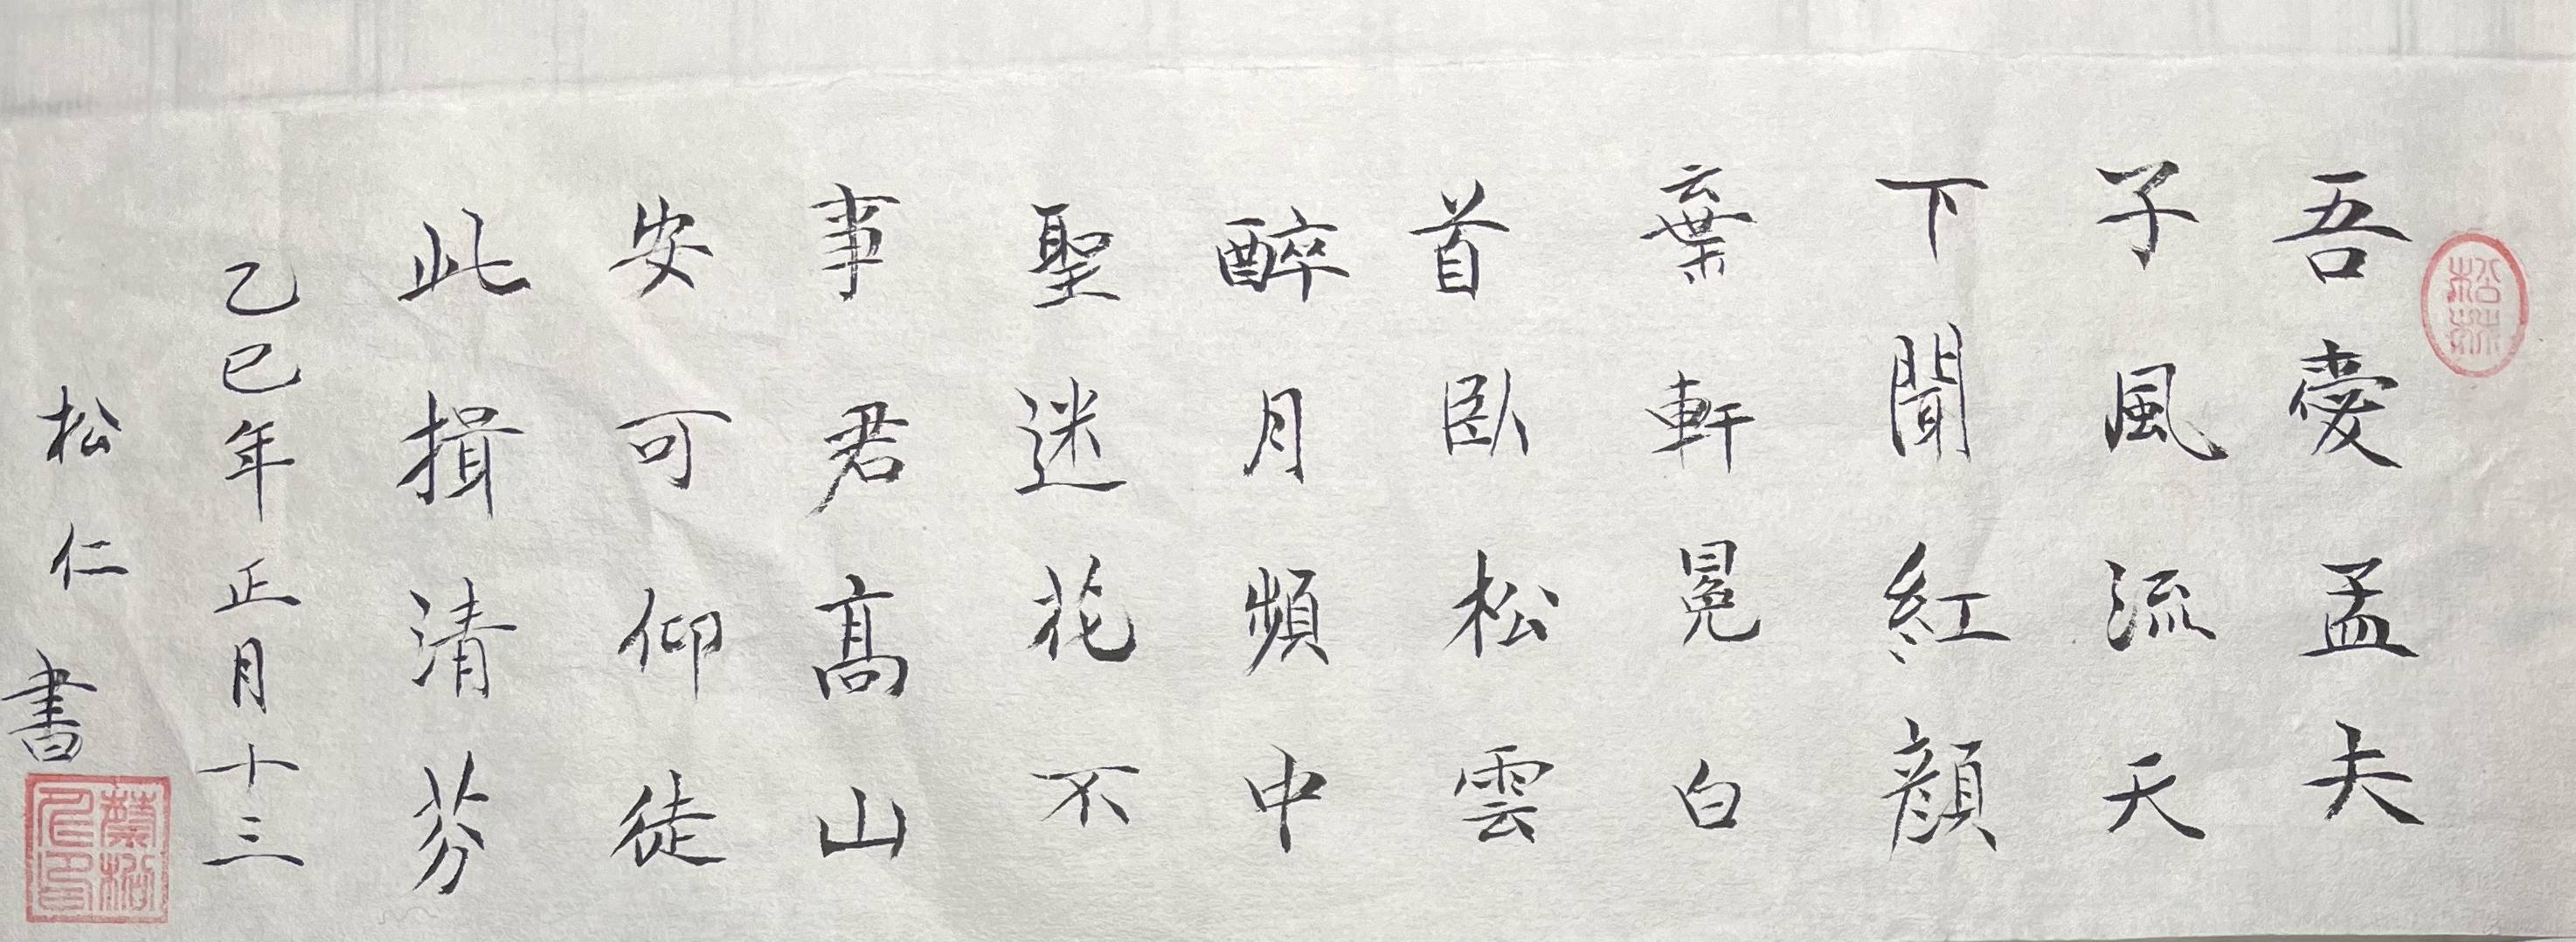 吾愛孟夫
子風流天
下聞紅顔
棄軒冕白
首臥松雲
醉月頻中
聖迷花不
事君高山
安可仰徒
此揖清芬
乙巳年正月十三
松仁書